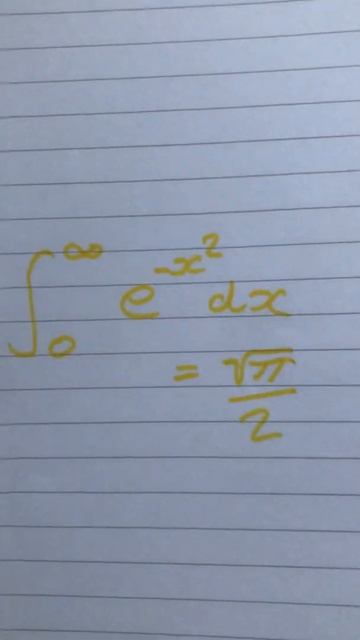 ∫₀^∞ e^{-x²} dx
= √π/2